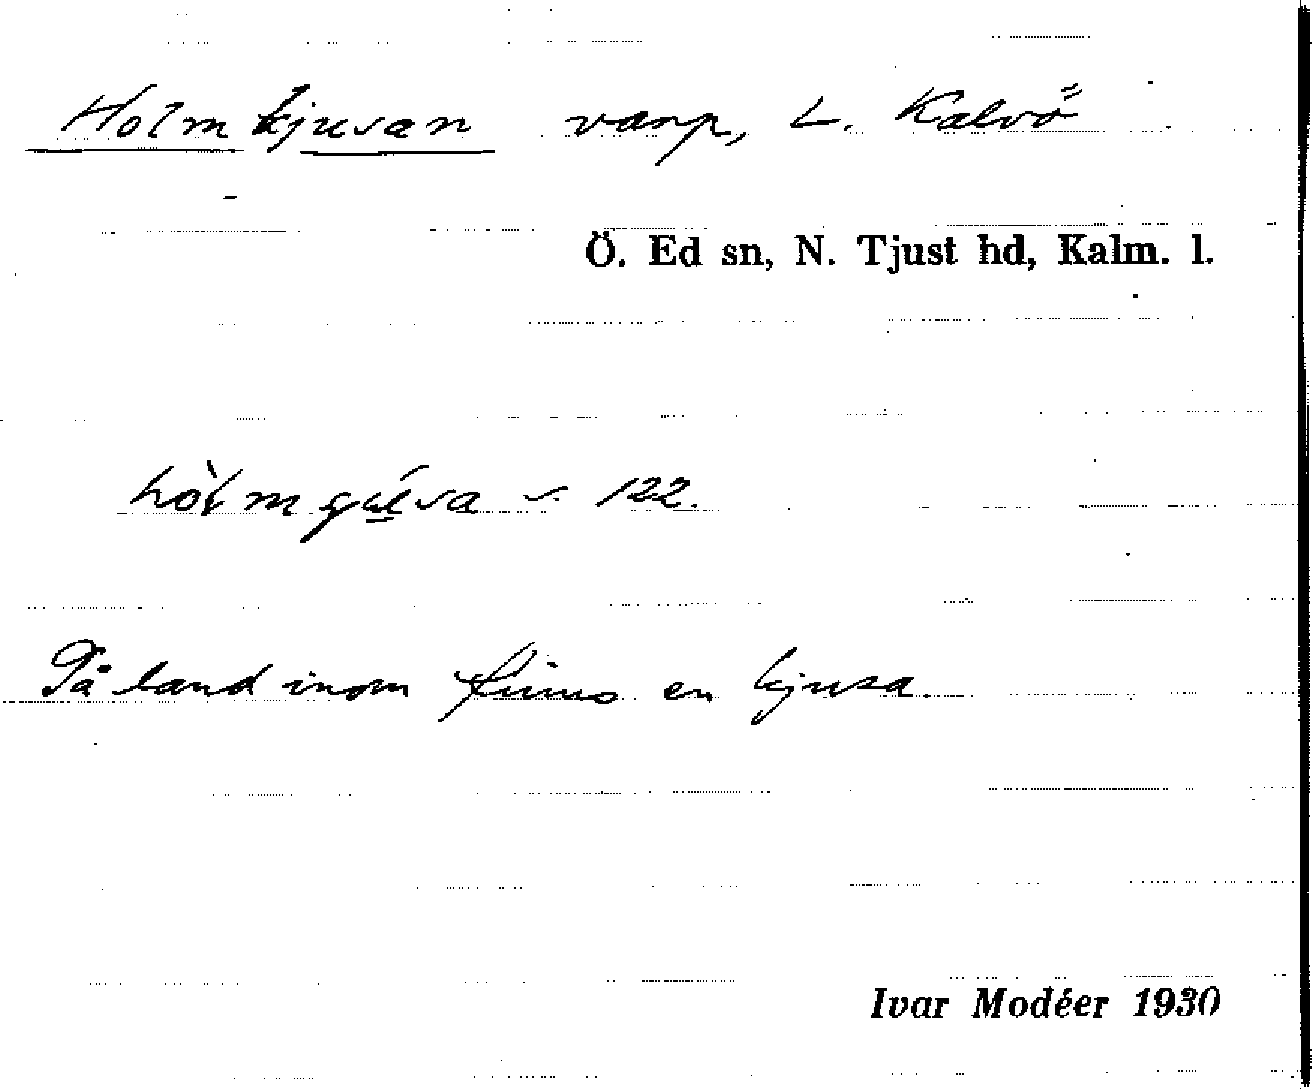 Holmkjusan varp, L. Kalvö
Ö. Ed sn, N. Tjust hd, Kalm. l.
122.
På land inom finns en kjusa.
Ivar Modéer 1930